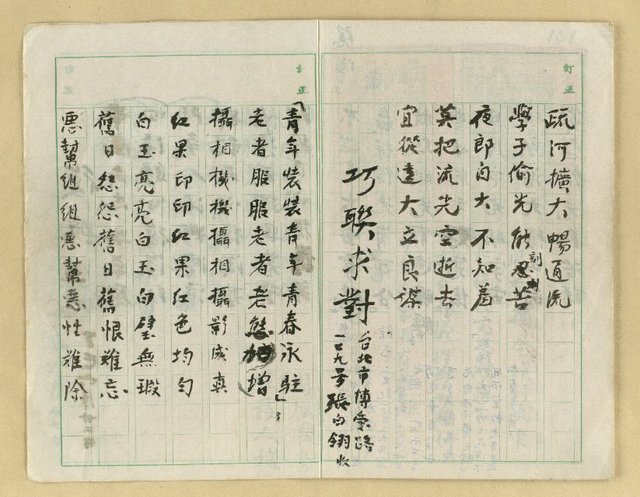 疏河擴大暢通流
學子偷光能刻苦
夜郎自大不知羞
莫把流光空逝去
宜從遠大立良謀
巧聯求對
台北市博愛路
一二九号張白翎收
「青年裝裝青年青春永駐」
老者服服老者老態加增
攝相機機攝相攝影成真
紅果印印紅果紅色均勻
白玉亮亮白玉白璧無瑕
舊日怨怨舊日舊恨難忘
惡幫組組惡幫惡性難除
訂正
訂正